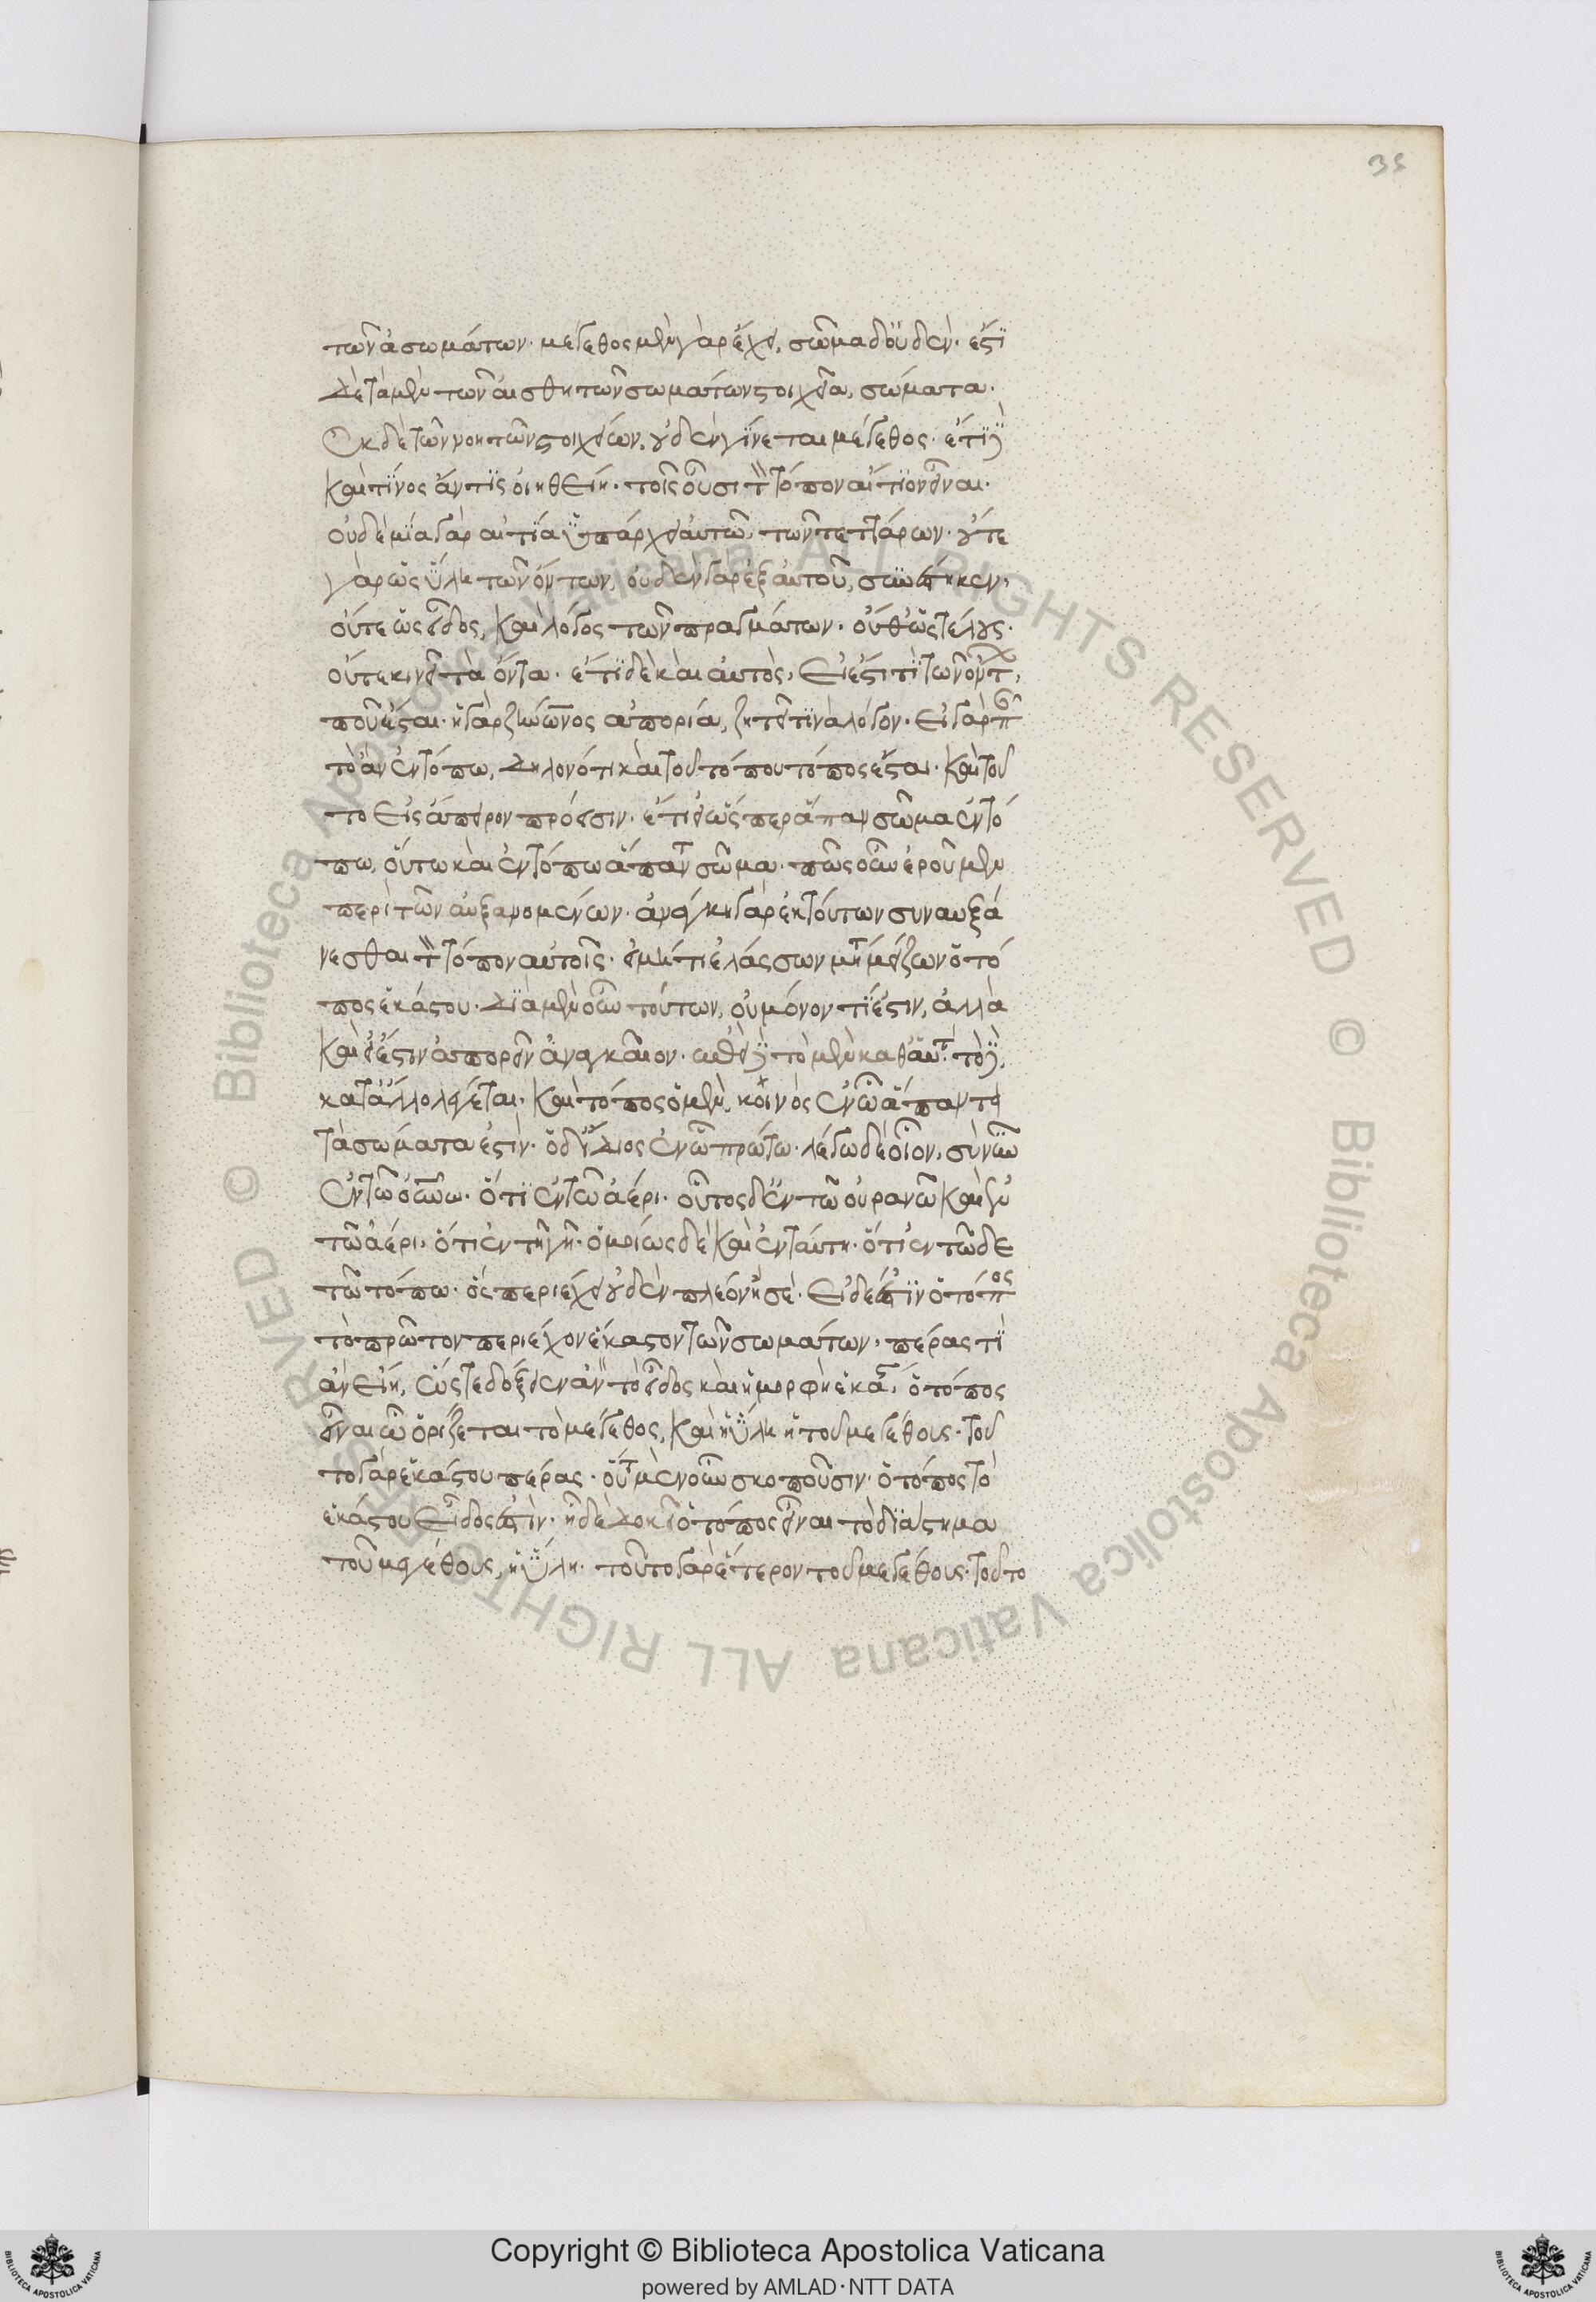 35
τῶν ἀσωμάτων· μέγεθος μὲν γὰρ ἔχει, σῶμα δ' οὐδέν· ἔστι
δὲ τὰ μὲν τῶν αἰσθητῶν σωμάτων στοιχεῖα, σώματα·
ἐκ δὲ τῶν νοητῶν στοιχείων, οὐδὲν γίνεται μέγεθος· ἔτι δὲ
καὶ τίνος ἄν τις οἰηθείη· τοῖς οὖσι τὸν τόπον αἴτιον εἶναι·
οὐδεμία γὰρ αἰτία ὑπάρχει αὐτῶ, τῶν τεττάρων· οὔτε
γὰρ ὡς ὕλη τῶν ὄντων, οὐδὲν γὰρ ἐξ αὐτοῦ, συνέστηκεν,
οὔτε ὡς εἶδος, καὶ λόγος τῶν πραγμάτων· οὔθ' ὡς τέλος·
οὔτε κινεῖ τὰ ὄντα· ἔτι δὲ καὶ αὐτὸς, εἰ ἔστι τὶ τῶν ὄντων,
ποῦ ἔσται· ἡ γὰρ ζήνωνος ἀπορία, ζητεῖ τινὰ λόγον· εἰ γὰρ πᾶν
τὸ ὂν ἐν τόπω, δηλονότι καὶ τοῦ τόπου τόπος ἔσται· καὶ τοῦ
το εἰς ἄπειρον πρόεισιν· ἔτι ὥσπερ ἅπαν σῶμα ἐν τό
πω, οὕτω καὶ ἐν τόπω ἅπαντι σῶμα· πῶς οὖν ἐροῦμεν
περὶ τῶν αὐξανομένων· ἀνάγκη γὰρ ἐκ τούτων συναυξά
νεσθαι τὸν τόπον αὐτοῖς· εἰ μήτι ἐλάσσων μήτε μείζων ὁ τό
πος ἑκάστου· διὰ μὲν οὖν τούτων, οὐ μόνον τί ἐστιν, ἀλλὰ
καὶ εἰ ἔστιν ἀπορεῖν ἀναγκαῖον· ἐπεὶ δὲ τὸ μὲν καθ' αὑτὸ τὸ δὲ,
κατ' ἄλλο λέγεται· καὶ τόπος ὁ μὲν, κοινὸς ἐν ὧ ἅπαντα
τὰ σώματα ἐστὶν· ὁ δ' ἴδιος ἐν ὧ πρώτω· λέγω δὲ οἷον, σὺ νῦν
ἐν τῶ οὐρανῶ· ὅτι ἐν τῶ ἀέρι· οὗτος δ' ἐν τῶ οὐρανῶ καὶ ἐν
τῶ ἀέρι· ὅτι ἐν τῆ γῆ· ὁμοίως δὲ καὶ ἐν ταύτη· ὅτι ἐν τῶδε
τῶ τόπω· ὃς περιέχει οὐδὲν πλέον ἢ σὲ· εἰ δέ ἐστιν ὁ τόπος
τὸ πρῶτον περιέχον ἕκαστον τῶν σωμάτων, πέρας τὶ
ἂν εἴη, ὥστε δόξειεν ἂν τὸ εἶδος καὶ ἡ μορφὴ ἑκάστου, ὁ τόπος
εἶναι ὧ ὁρίζεται τὸ μέγεθος, καὶ ἡ ὕλη ἡ τοῦ μεγέθους· τοῦ
το γὰρ ἑκάστου πέρας· οὕτω μὲν οὖν σκοποῦσιν· ὁ τόπος τὸ
ἑκάστου εἶδος ἐστὶν· ἧ δὲ δοκεῖ ὁ τόπος εἶναι τὸ διάστημα
τοῦ μεγέθους, ἡ ὕλη· τοῦτο γὰρ ἕτερον τοῦ μεγέθους· τοῦτο
Copyright © Biblioteca Apostolica Vaticana
powered by AMLAD·NTT DATA